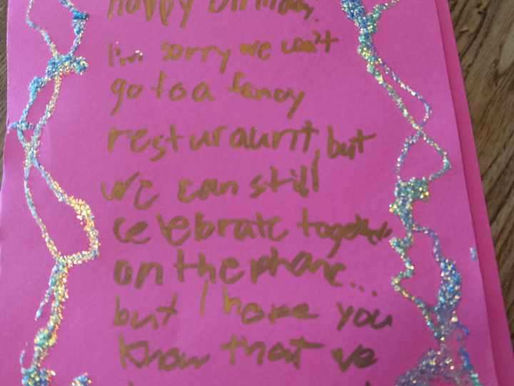 Happy Birthday,
I'm sorry we can't
go to a fancy
resturaunt, but
we can still
celebrate together
on the phone...
but I hope you
know that we